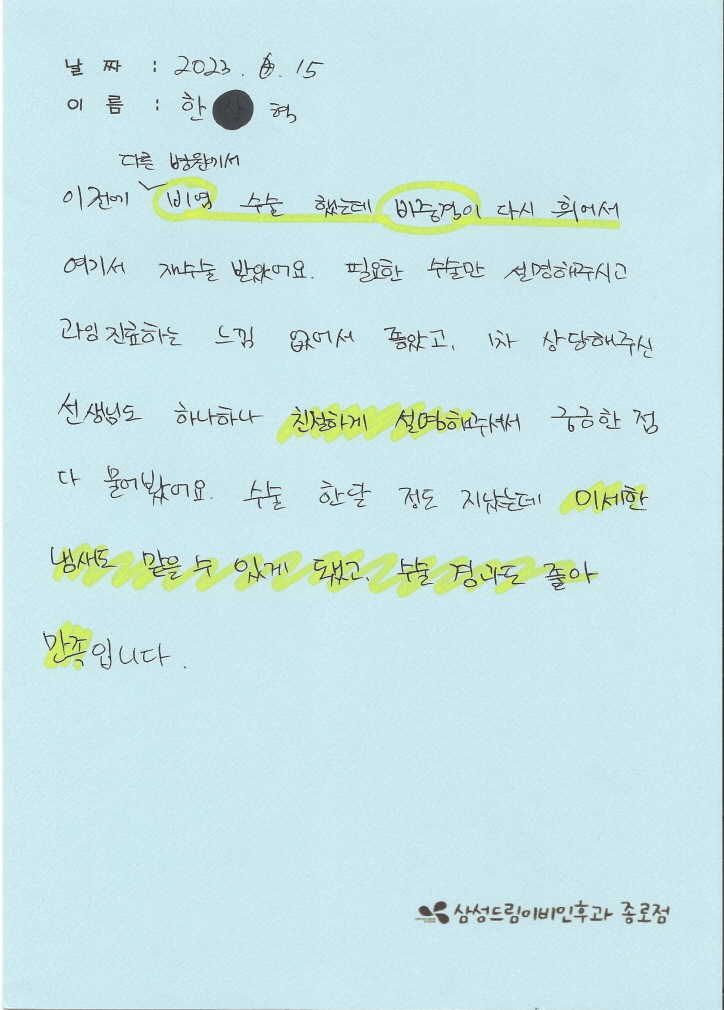 날 짜 : 2023. 6. 15
이 름 : 한 혁
다른 병원에서
이전에 비염 수술 했는데 비중격이 다시 휘어서
여기서 재수술 받았어요. 필요한 수술만 설명해주시고
과잉진료하는 느낌 없어서 좋았고, 1차 상담해주신
선생님도 하나하나 친절하게 설명해주셔서 궁금한 점
다 물어봤어요. 수술 한달 정도 지났는데 미세한
냄새도 맡을 수 있게 됐고, 수술 경과도 좋아
만족입니다.
삼성드림이비인후과 종로점